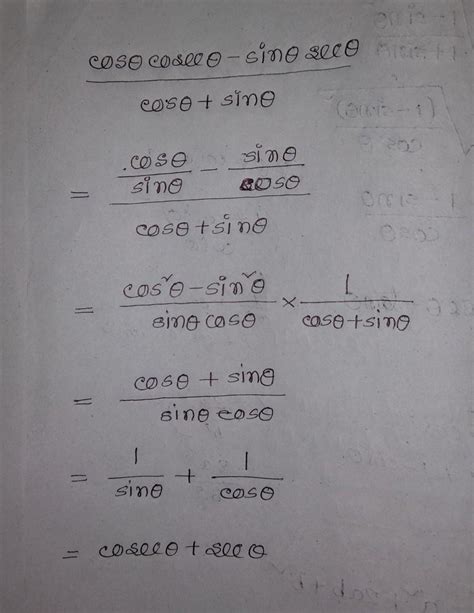 cosθ cosecθ - sinθ secθ
cosθ + sinθ
cosθ/sinθ - sinθ/cosθ
=
cosθ + sinθ
= (cos²θ - sin²θ)/(sinθ cosθ) × 1/(cosθ + sinθ)
= (cosθ + sinθ)/(sinθ cosθ)
= 1/sinθ + 1/cosθ
= cosecθ + secθ